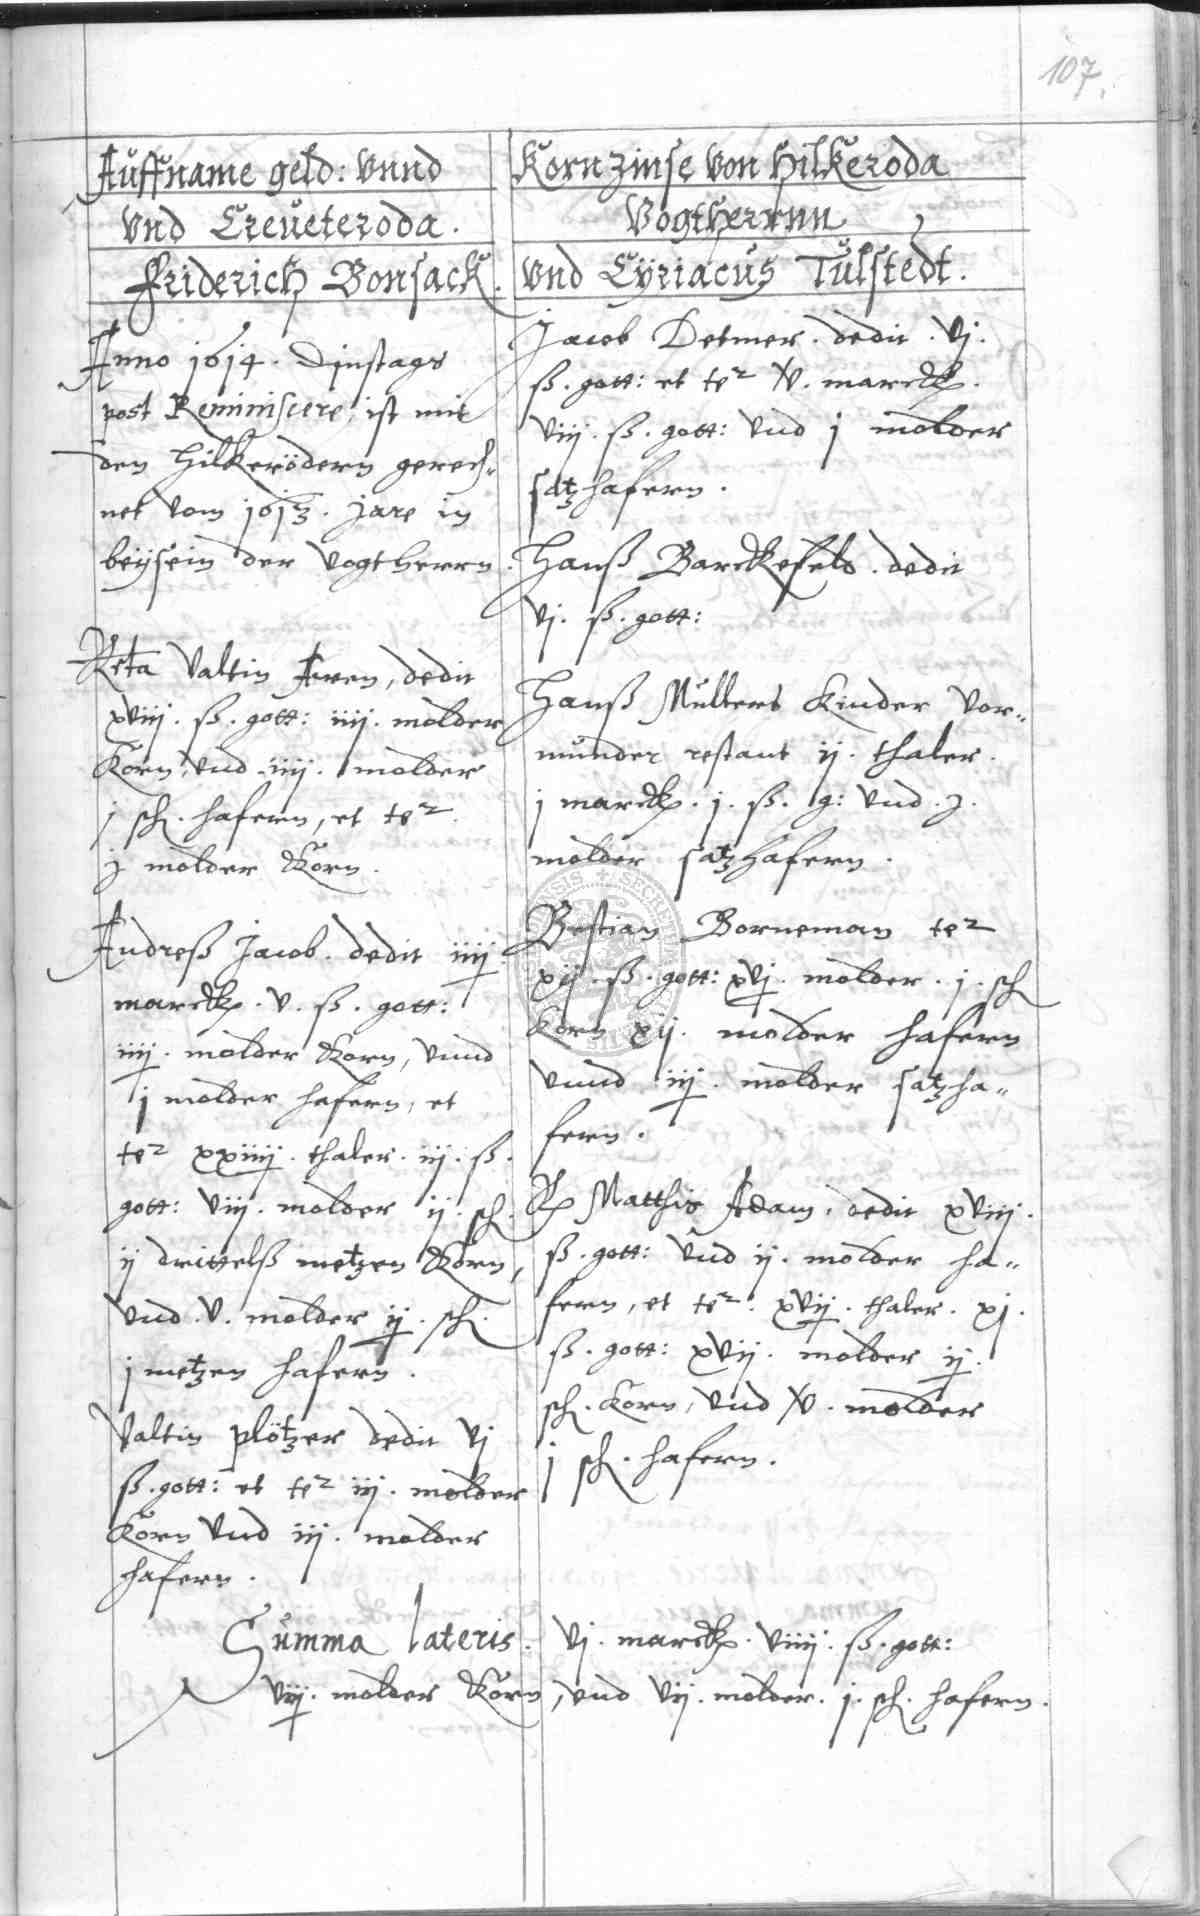 107.
Auffname geld: vnnd Kornzinse von Hilkeroda
vnd Creueteroda. Vogtherrnn
Friderich Bonsack. vnd Cÿriacus Tulstedt.
Anno 1614. Dinstags
post Reminiscere, ist mit
den Hilkerödern gerech„
net vom 1613. Jare in
beÿsein der Vogtherrn.
Rcta Valtin Aren, dedit
xviij. ß. gott: iiij. molder
Korn, vnd iiij. molder
j sch. hafern, et te2
molder Korn.
Andreß Jacob. dedit iiij
marck. v. ß. gott:
iiij. molder Korn, vnnd
j molder hafern, et
te2 xxiiij. thaler. iij. ß.
gott: viij. molder ij. sch.
ij drittelß metzen Korn,
vnd. v. molder ij. sch.
j metzen hafern.
Valtin plötzer dedit vj
ß. gott: et te2 iij. molder
Korn vnd iij. molder
hafern.
Jacob Detmer. dedit. vj.
ß. gott: et te2 v. marck.
viij. ß. gott: vnd j molder
satzhafern.
Hanß Barckefeld. dedit
vj. ß. gott:
Hanß Mullers Kinder Vor„
münder restant ij. thaler.
j marck. j. ß. g: vnd
molder satzhafern.
Bestian Borneman te2
xij. ß. gott: xvj. molder. j. sch
Korn xij. molder hafern
vnnd iij. molder satzha„
fern.
R Matthis Adam, dedit xviij.
ß. gott: vnd ij. molder ha„
fern, et te2. xvij. thaler. xj.
ß. gott: xvij. molder ij.
sch. Korn, vnd v. molder
j sch. hafern.
Summa lateris. vj. marck. viiij. ß. gott:
viij. molder Korn, vnd vij. molder. j. sch. hafern.